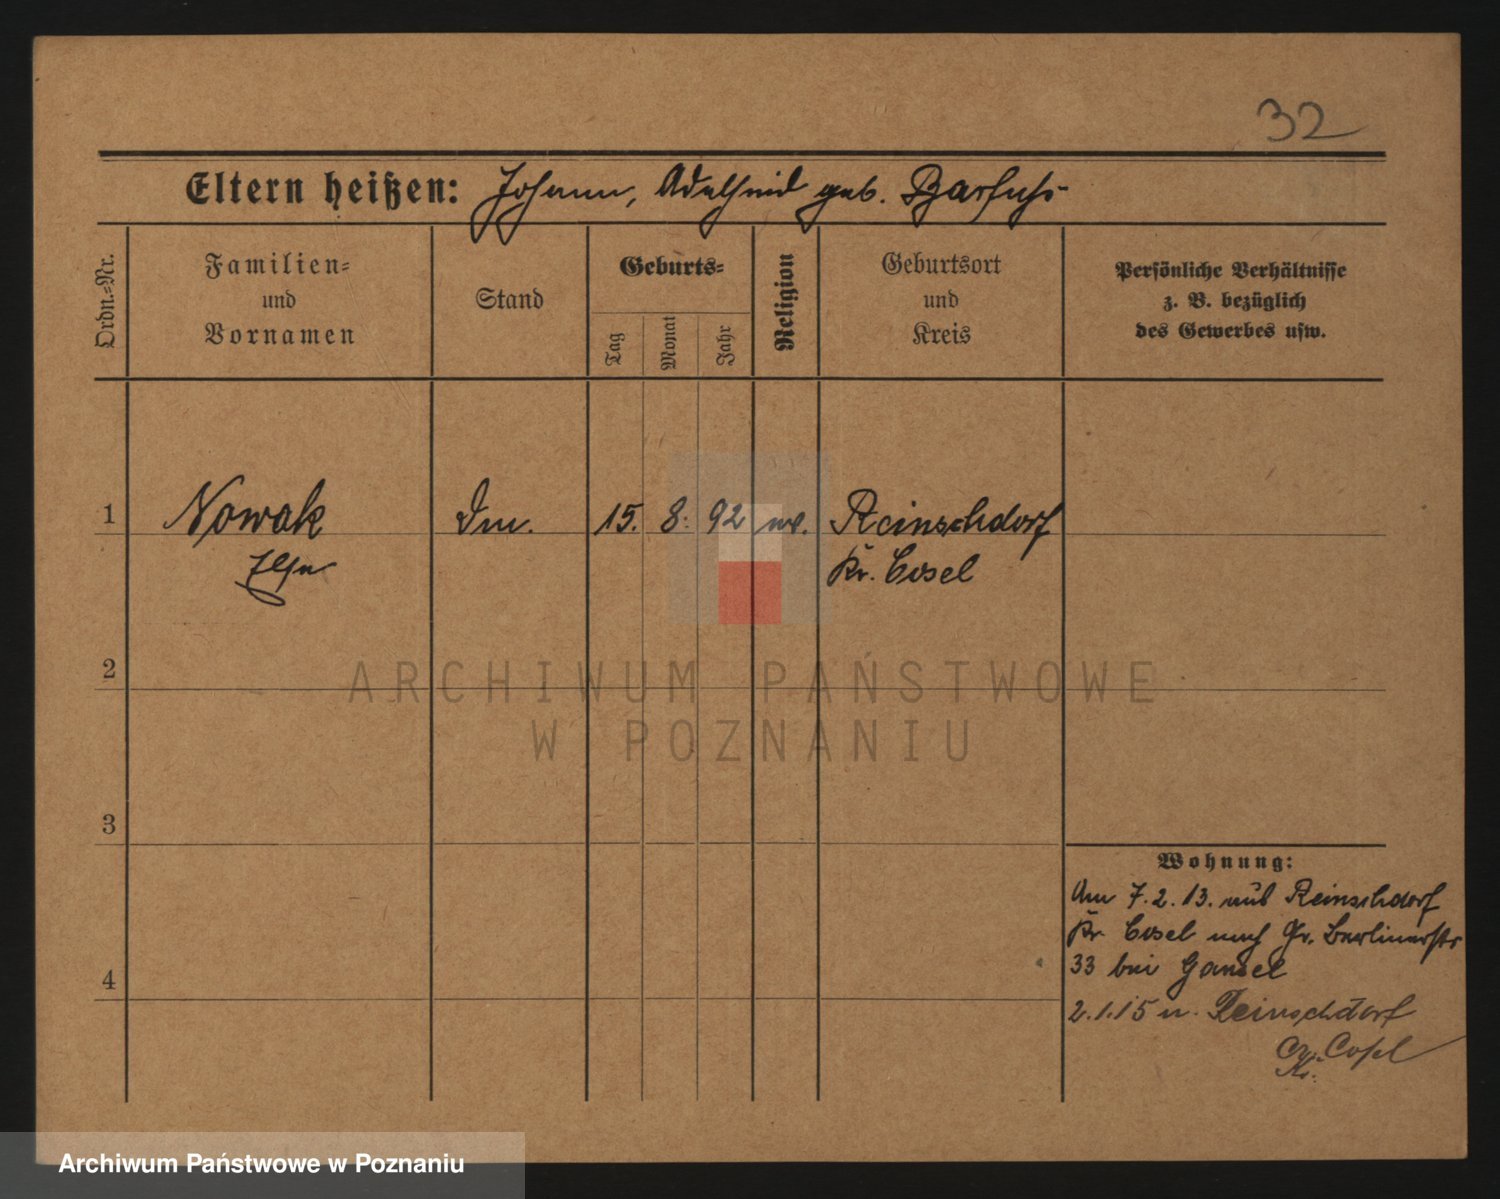 32
Eltern heißen: Johann, Adelheid geb. Barfuss
Ordn.-Nr.
Familien-
und
Vornamen
Stand
Geburts-
Tag
Monat
Jahr
Religion
Geburtsort
und
Kreis
Persönliche Verhältnisse
z. B. bezüglich
des Gewerbes usw.
1 Nowak 15. 8. 92 Reinschdorf
Kr. Cosel
2
ARCHIWUM PAŃSTWOWE
W POZNANIU
3
Wohnung:
Am 7.2.13. aus Reinschdorf
Kr. Cosel nach Gr. Berlinerstr
33 bei Gansel
4
2.1.15 n. Reinschdorf
Kr. Cosel
Archiwum Państwowe w Poznaniu